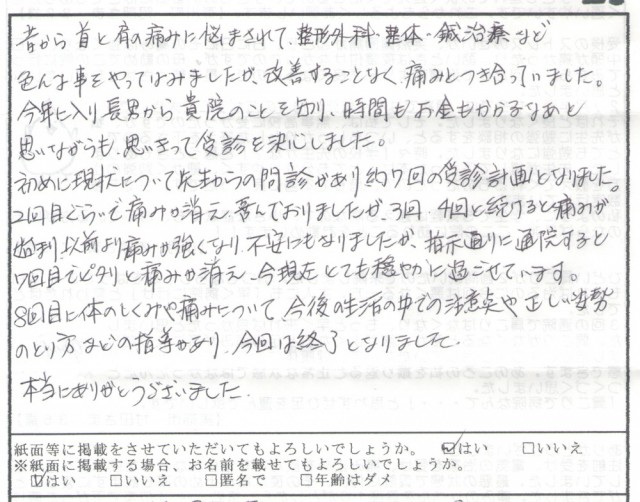 昔から首と肩の痛みに悩まされて、整形外科・整体・鍼治療など
色んな事をやってはみましたが、改善することなく痛みとつき合っていました。
今年に入り長男から貴院のことを知り、時間もお金もかかるなあと
思いながらも、思いきって受診を決心しました。
初めに現状について先生からの問診があり約7回の受診計画となりました。
2回目ぐらいで痛みが消え喜んでおりましたが、3回・4回と続けると痛みが
始まり、以前より痛みが強くなり、不安にもなりましたが、指示通りに通院すると
7回目でピタリと痛みが消え、今現在とても穏やかに過ごせています。
8回目に体のしくみや痛みについて、今後の生活の中での注意点や正しい姿勢
のとり方などの指導があり、今回は終了となりました。
本当にありがとうございました。
紙面等に掲載をさせていただいてもよろしいでしょうか。 ☑はい □いいえ
※紙面に掲載する場合、お名前を載せてもよろしいでしょうか。
☑はい □いいえ □匿名で □年齢はダメ